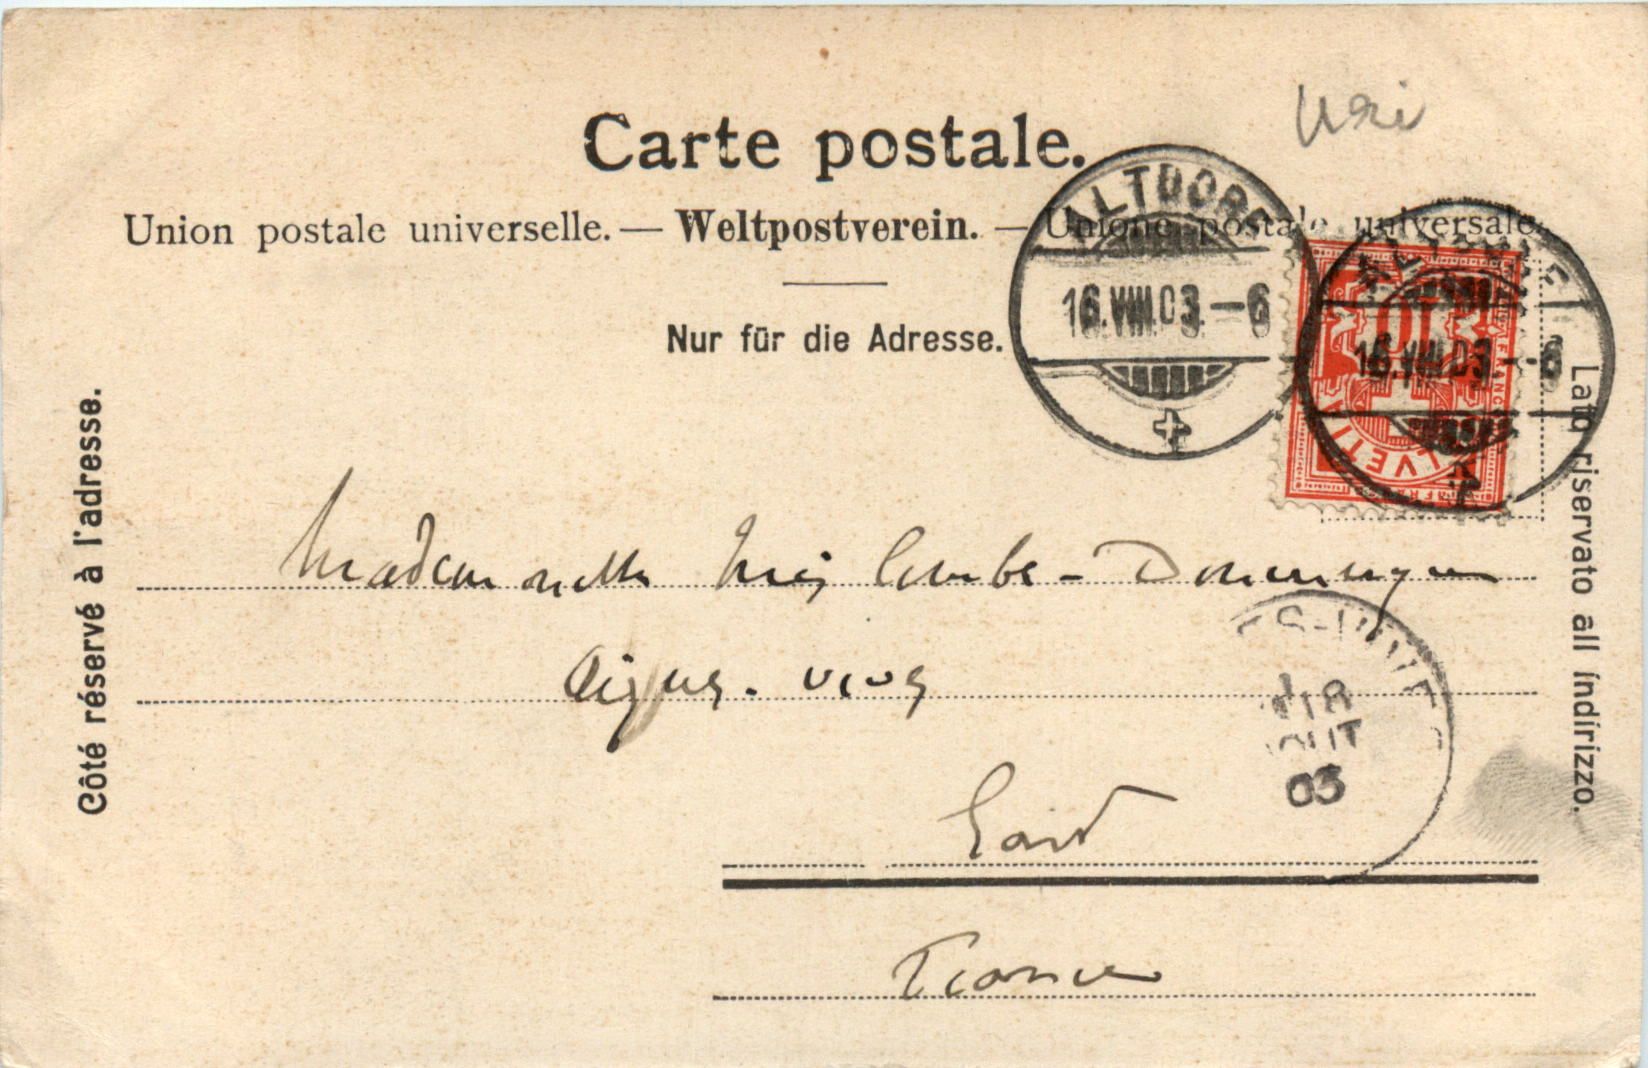 Uri
Carte postale.
Union postale universelle. — Weltpostverein. — Unione postale universale.
Nur für die Adresse.
ALTDORF
16.VIII.03.–6
ALTDORF
16.VIII.03.–6
HELVETIA
10
FRANCO
Côté réservé à l'adresse.
Lato riservato all indirizzo.
Mademoiselle Combe - Dommergue
Aigues-Vives
ES-VIVES
18
OUT
03
Gard
France